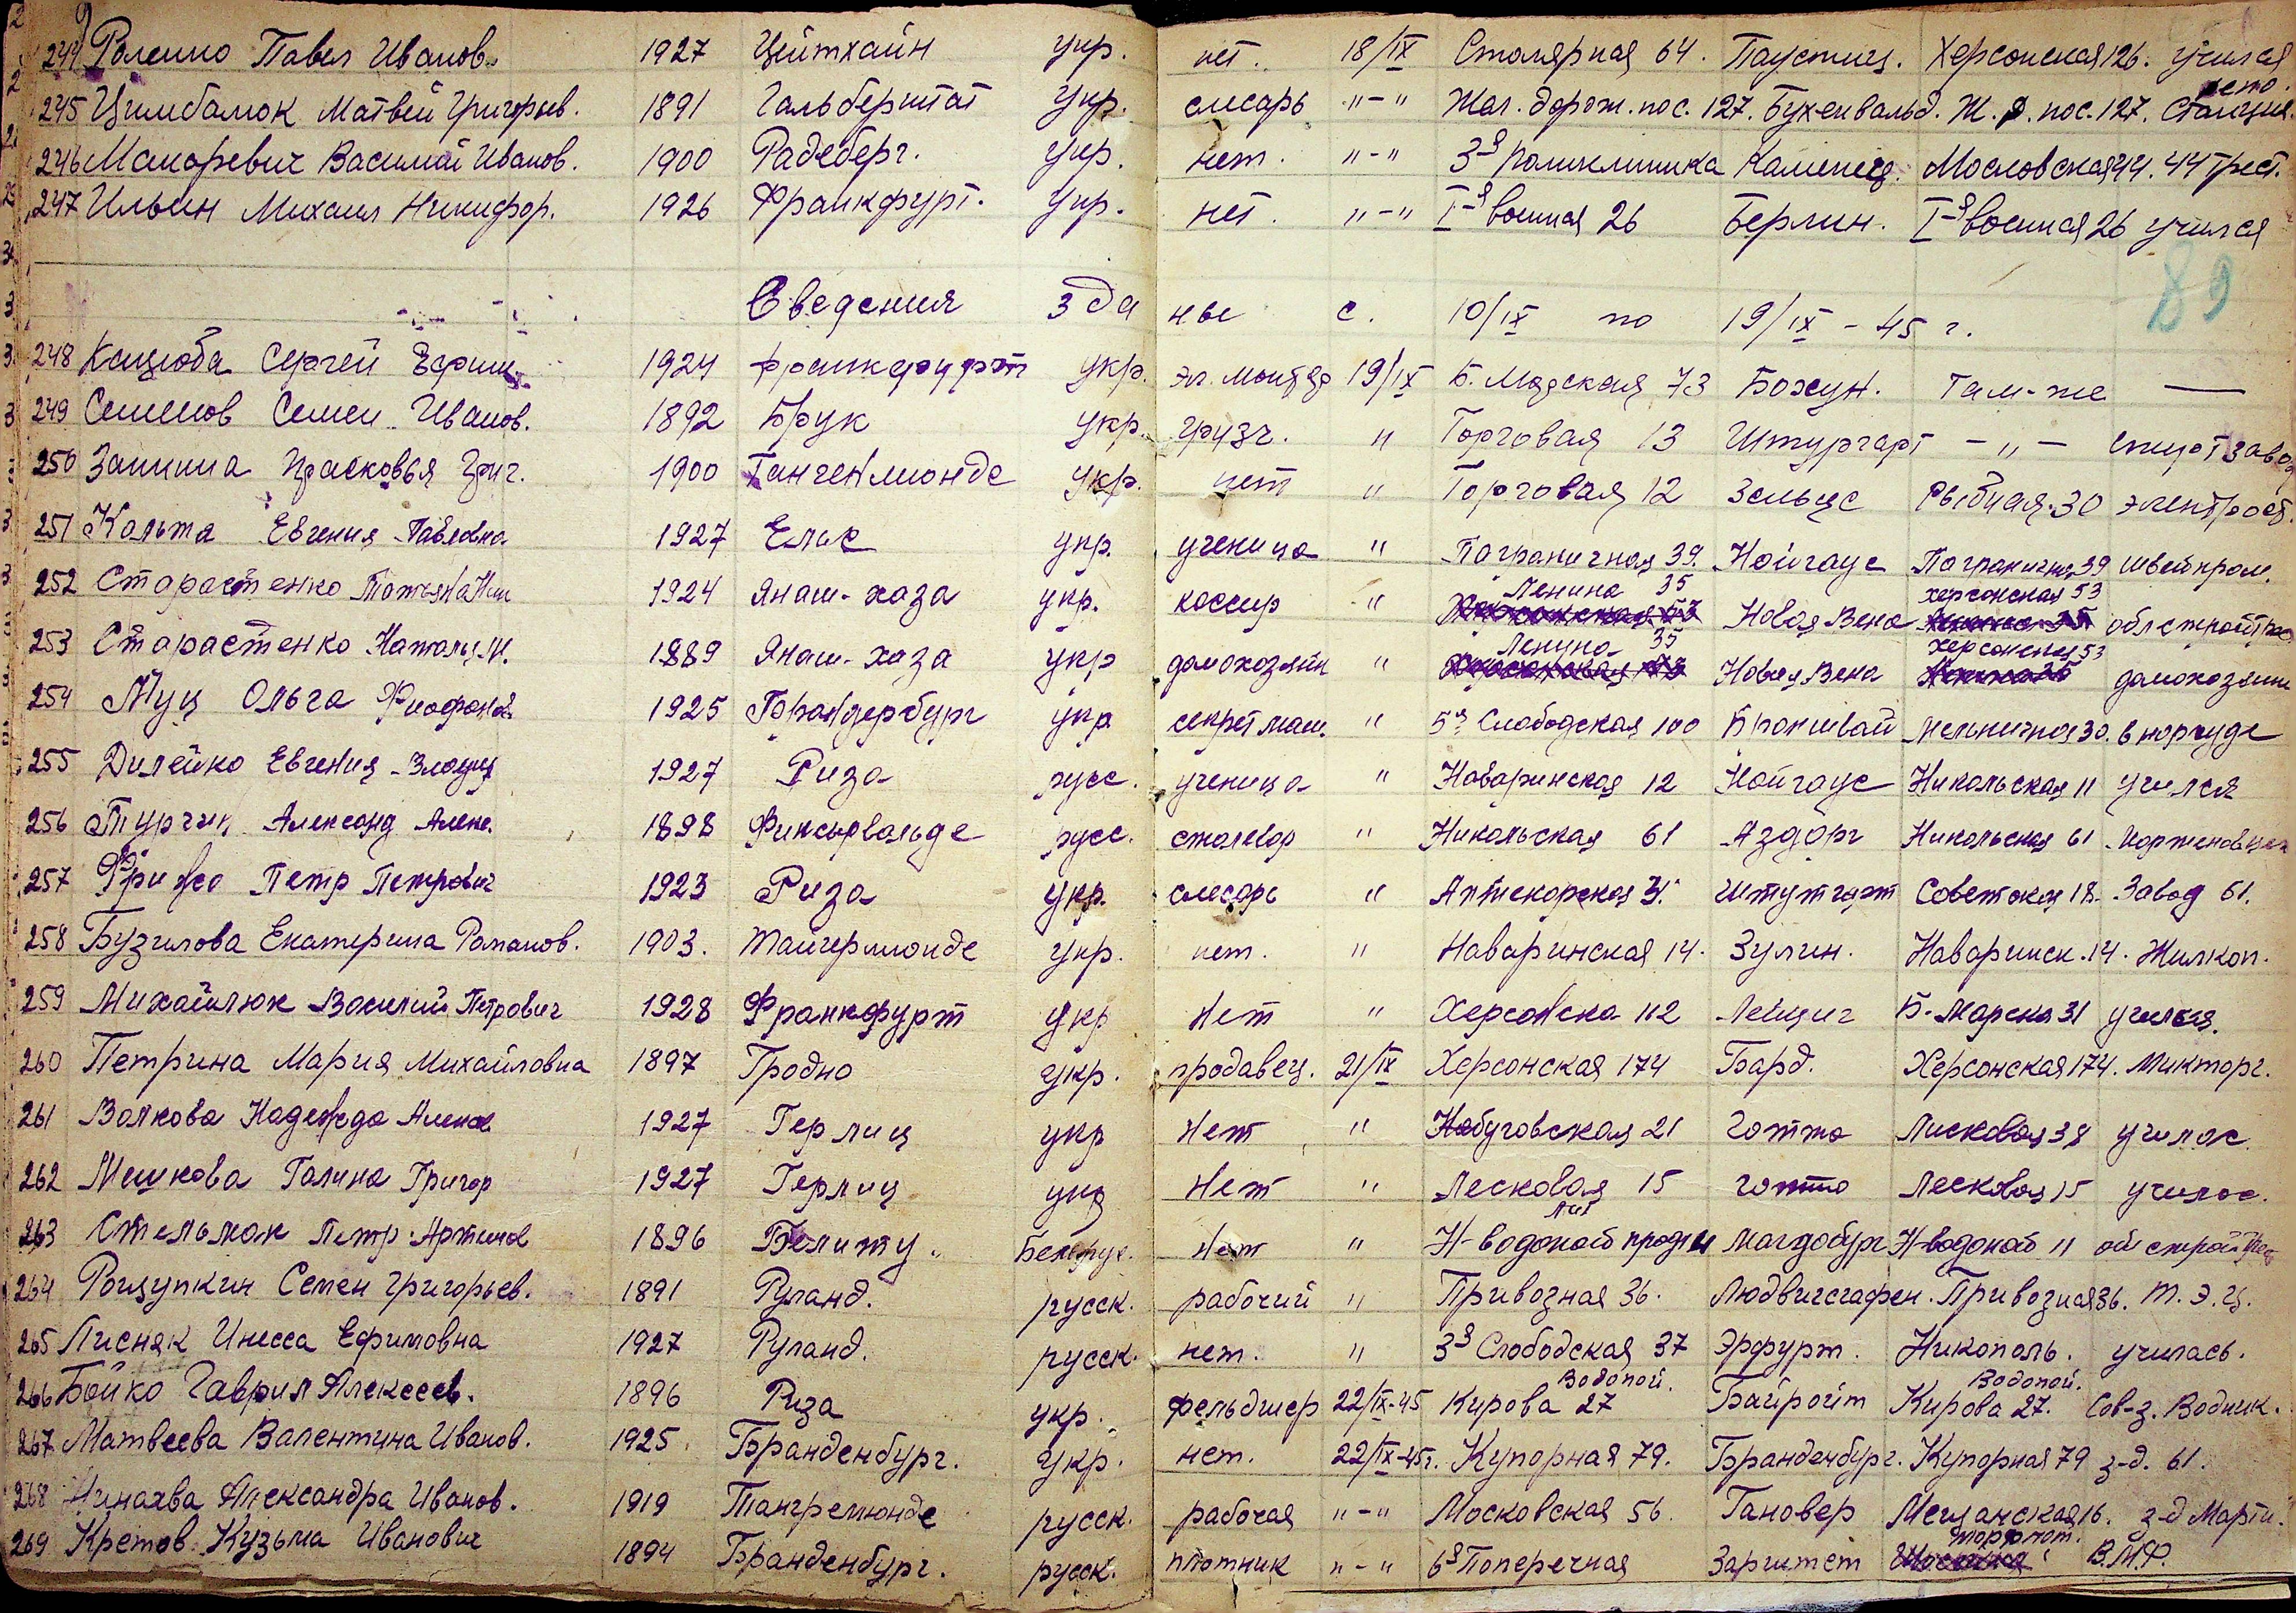 244 Павел Иванов. 1927 Цейтхайн укр. нет. 18/IX Столярная 64. Паустиц. Херсонская 126. учился
245 Цимбалюк Матвей Григорьев. 1891 Гальберштат укр. слесарь "-" Жел. дорож. пос. 127. Бухенвальд. Ж. д. пос. 127. депо.
246 Макаревич Василий Иванов. 1900 Радеберг. укр. нет. "-" 3-я поликлиника Каменец. Московская 44. 44 трест.
247 Ильин Михаил Никифор. 1926 Франкфурт. укр. нет. "-" I-я военная 26 Берлин. I-я военная 26 учился
89
Сведения з да ные с. 10/IX по 19/IX - 45 г.
248 Кацюба Сергей Ефим. 1924 Франкфурт укр. эл. монтер 19/IX Б. Морская 73 Бохун. Там-же —
249 Семенов Семен Иванов. 1892 Брук укр. грузч. " Торговая 13 Штургарт - " - спирт завод
250 Занина Прасковья Григ. 1900 Тангенмюнде укр. нет " Торговая 12 Зельце Рыбная 30 электрост.
251 Кольта Евгения Павловна 1927 Ельс укр. ученица " Пограничная 39. Нойгаус Пограничная 39 швейпром.
252 Старастенко Татьяна Ник 1924 Янаш-хаза укр. кассир " Ленина 35 Новая Вена Херсонская 53 облстройтрест
253 Старастенко Наталья И. 1889 Янаш-хаза укр домохозяйк " Ленина 35 Новая Вена Херсонская 53 домохозяйк
254 Муц Ольга Феофана 1925 Бранденбург укр секрет маш. " 5я Слободская 100 Браншвай Мельничная 30. в норсуде
255 Дилейко Евгения 1927 Риза русс. ученица " Наваринская 12 Нойгаус Никольская 11 учился
256 Турчин Александ Алекс. 1898 Финстервальде русс. сталевар " Никольская 61 Аздорг Никольская 61 Мартеновцех
257 Петр Петрович 1923 Риза укр. слесарь " Аптекарская 3. Штутгарт Советская 18. Завод 61.
258 Бузилова Екатерина Романов. 1903. Тангермюнде укр. нет. " Наваринская 14. Зулин. Наваринск. 14. Жилкоп.
259 Михайлюк Василий Петрович 1928 Франкфурт укр Нет " Херсонска 112 Лейпциг Б. Морска 31 учился.
260 Петрина Мария Михайловна 1897 Гродно укр. продавец. 21/IX Херсонская 174 Бард. Херсонская 174. Микторг.
261 Волкова Надежда Алекс 1927 Герлиц укр Нет " Набуговская 21 Готта Лисковая 38 училас.
262 Мешкова Галина Григор 1927 Герлиц укр Нет " Лесковая 15 готта Лесковая 15 училас.
263 Стельмак Петр Артемов 1896 Белиту. Белорус. Нет " Н-водопой 11 Магдобург Н-водопой 11 обл строй трест
264 Рощупкин Семен Григорьев. 1891 Руланд. русск. рабочий " Привозная 36. Людвигсгафен. Привозная 36. Т.Э.Ц.
265 Лисняк Инесса Ефимовна 1927 Руланд. русск. нет. " 3я Слободская 37 Эрфурт. Никополь. училась.
266 Бойко Гаврил Алексеев. 1896 Риза укр. фельдшер 22/IX-45 Водопой. Кирова 27 Байройт Водопой. Кирова 27. Сов-з. Водник.
267 Матвеева Валентина Иванов. 1925. Бранденбург. укр. нет. 22/IX-45г. Купорная 79. Бранденбург. Купорная 79 з-д. 61.
268 Александра Иванов. 1919 Тангремюнде русск. рабочая "-" Московская 56. Гановер Мещанская 16. з-д Марти.
269 Кретов Кузьма Иванович 1894 Бранденбург. русск. плотник "-" 6я Поперечная Заргштет торгпорт. В.М.Ф.